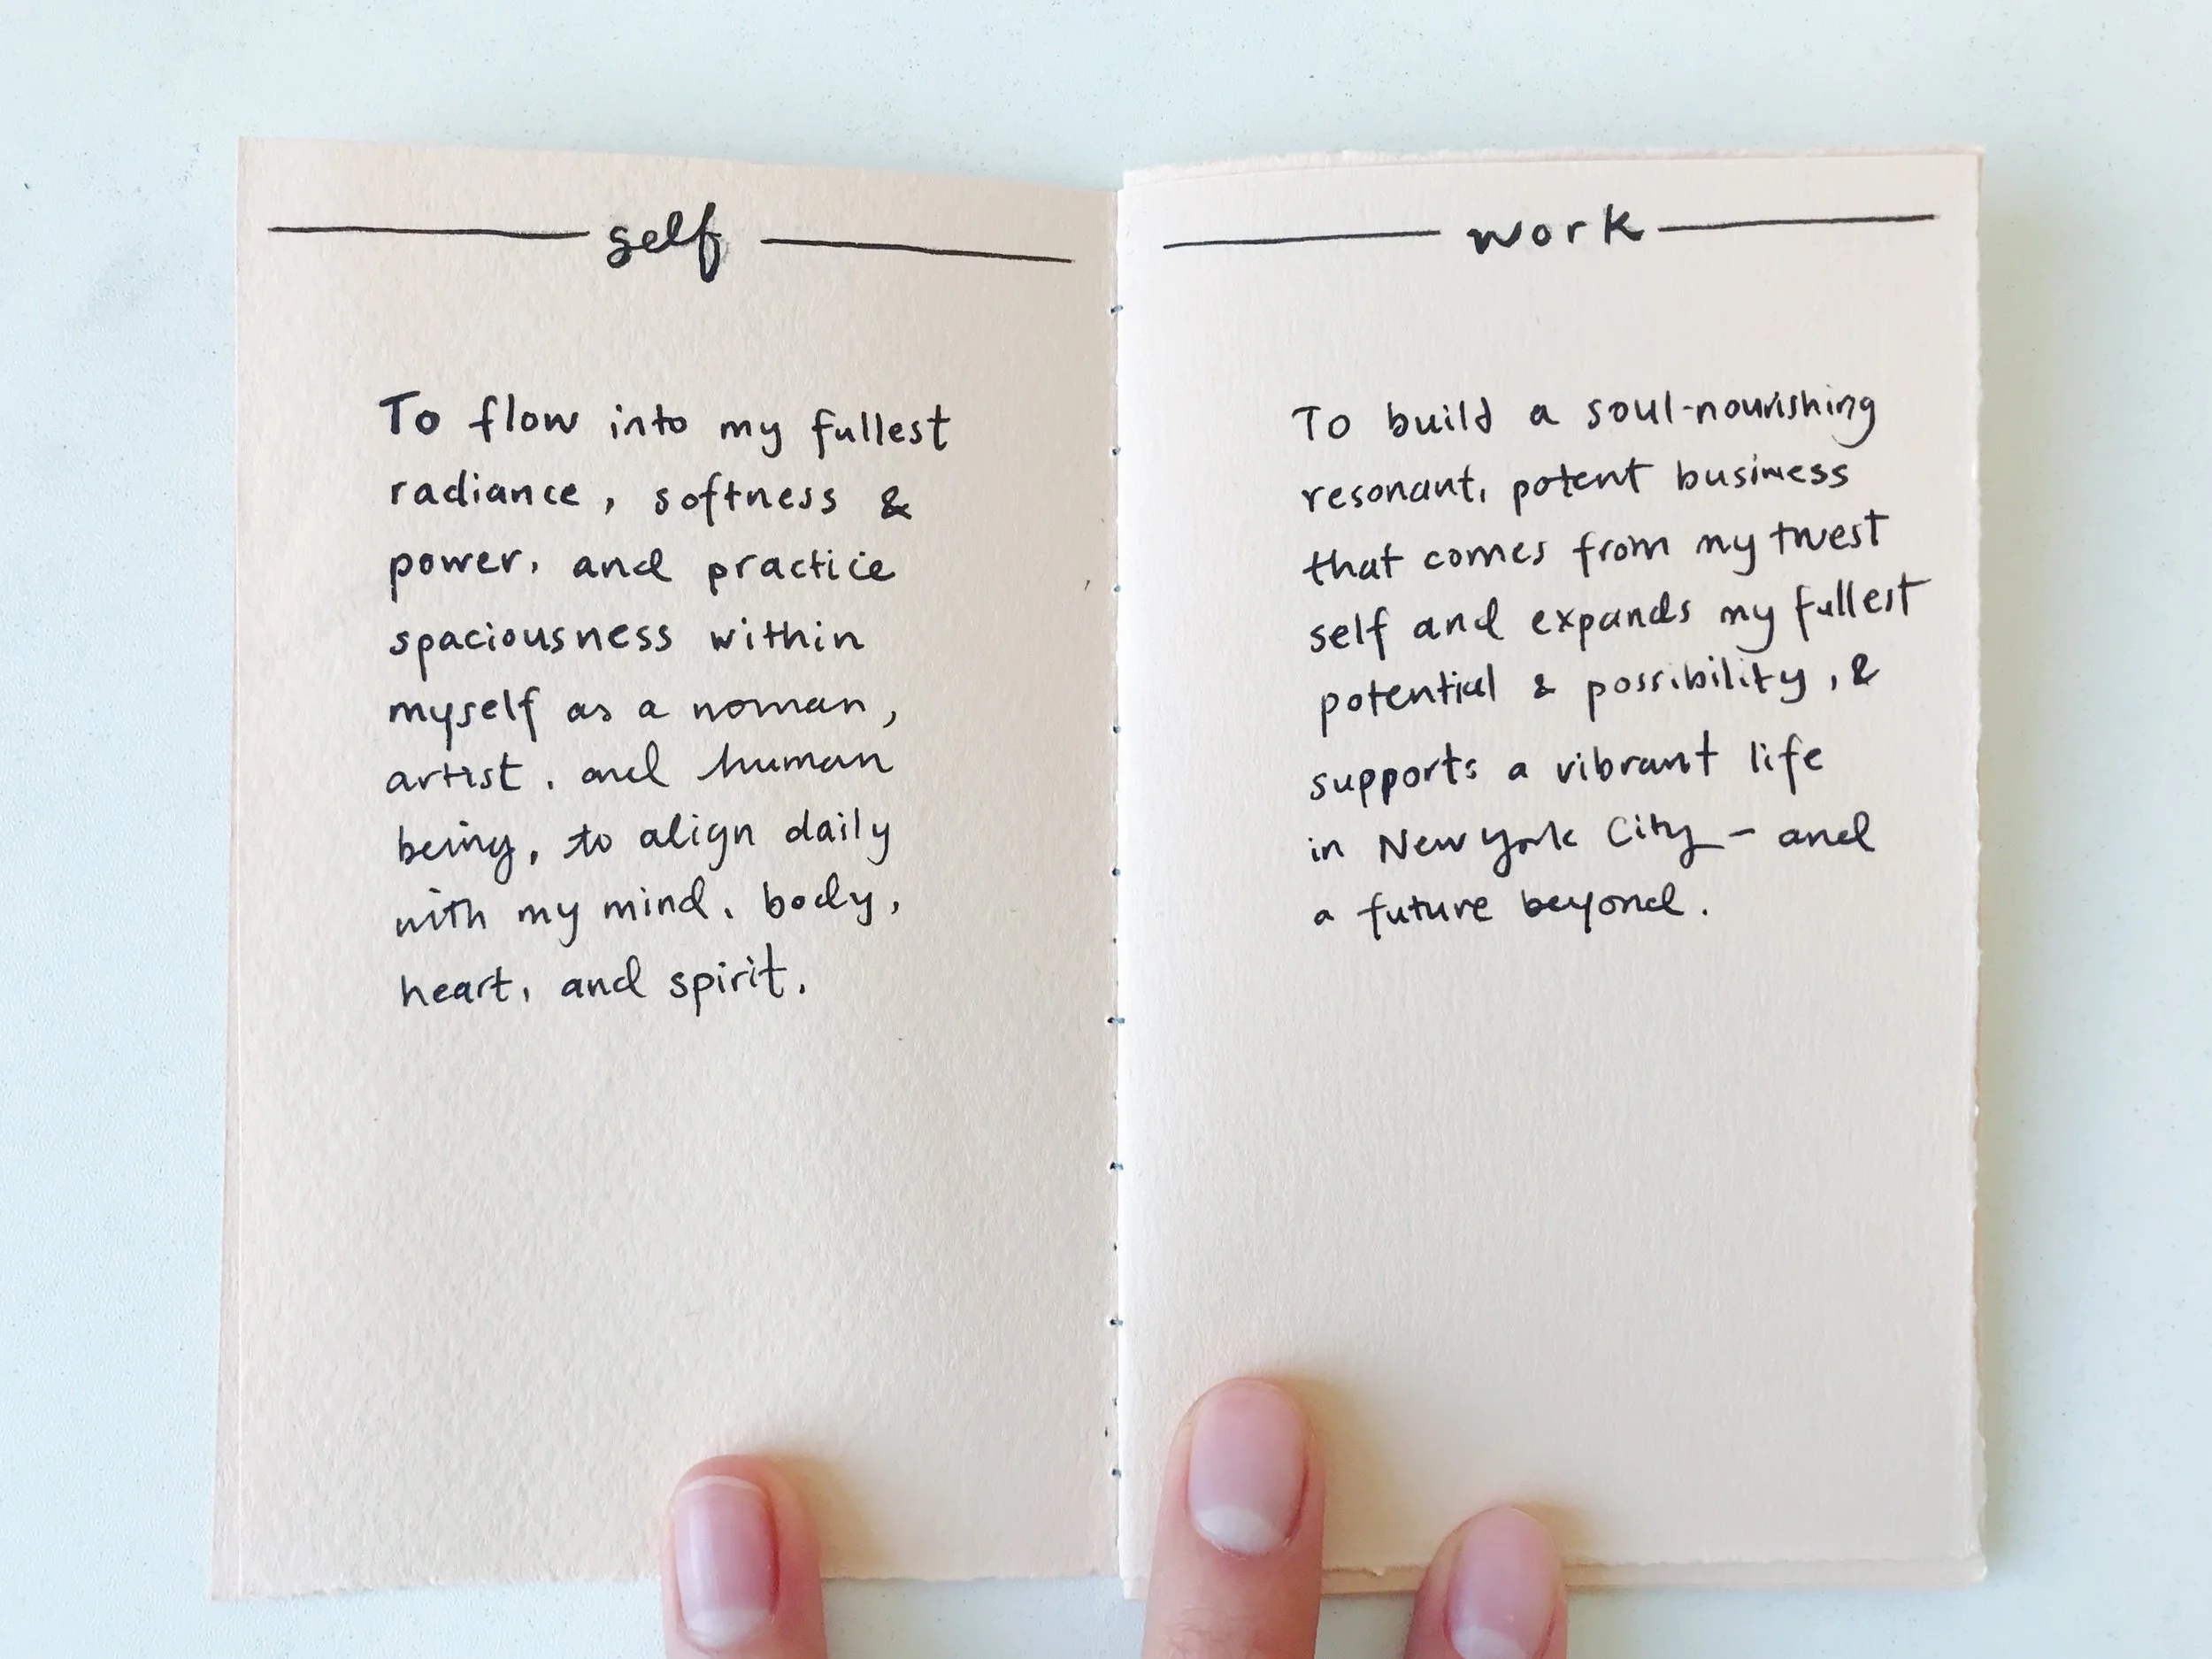 self
To flow into my fullest
radiance, softness &
power, and practice
spaciousness within
myself as a woman,
artist, and human
being, to align daily
with my mind, body,
heart, and spirit.
work
To build a soul-nourishing
resonant, potent business
that comes from my truest
self and expands my fullest
potential & possibility, &
supports a vibrant life
in New York City - and
a future beyond.